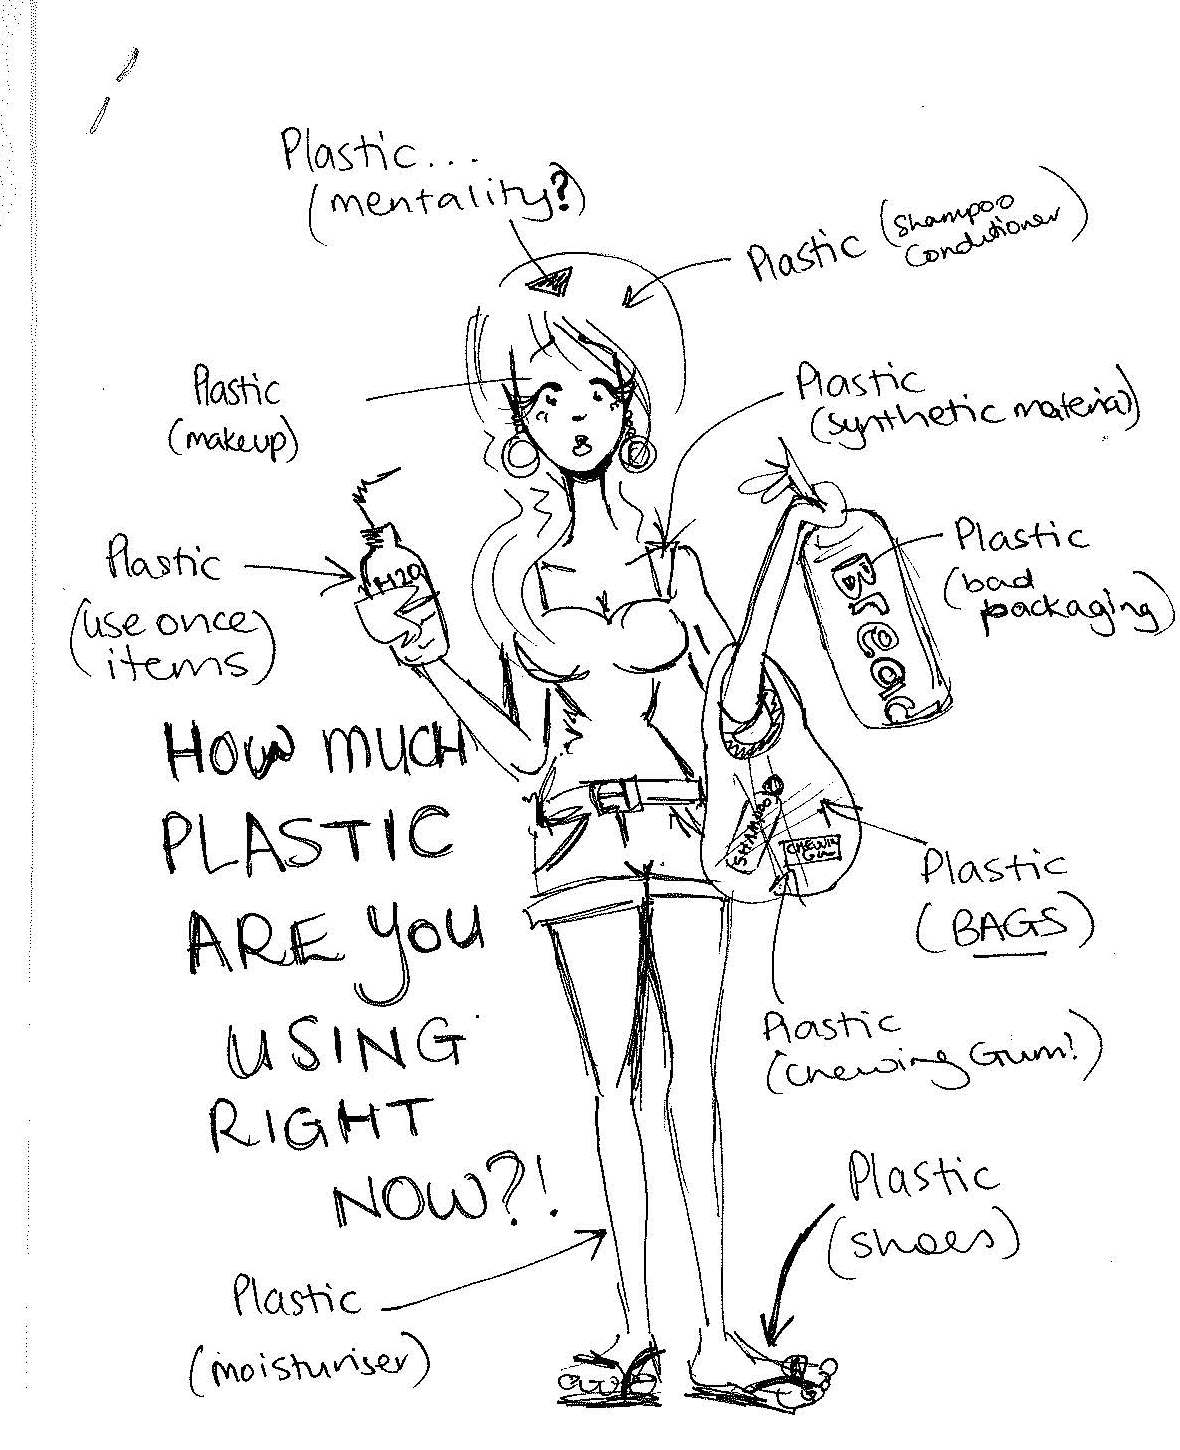 Plastic...
(mentality?)
Plastic (Shampoo
Conditioner)
Plastic
(makeup)
Plastic
(synthetic material)
Plastic
(use once
items)
H2O
Bread
Plastic
(bad
packaging)
HOW MUCH
PLASTIC
ARE YOU
USING
RIGHT
NOW?!
SHAMPOO
CHEWIN
GUM
Plastic
(BAGS)
Plastic
(Chewing Gum!)
Plastic
(shoes)
Plastic
(moisturiser)